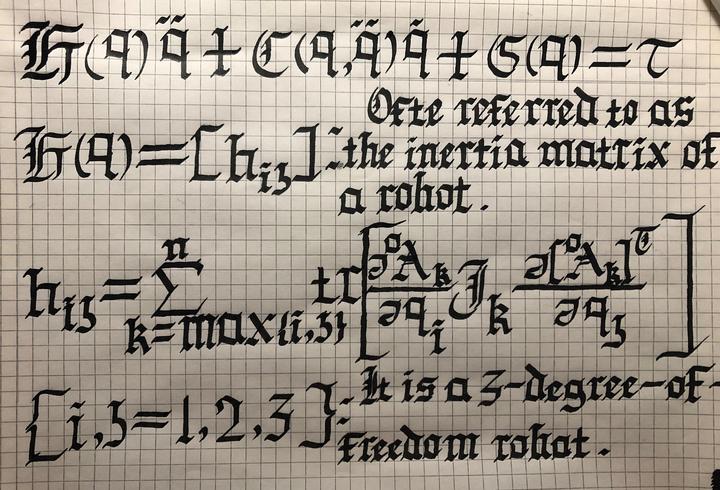 H(q)q̈ + C(q,q̈)q̈ + G(q) = τ
Ofte referred to as
H(q) = [h_ij] :- the inertia matrix of
a robot.
h_ij = Σ^n_{k=max{i,j}} tr[ ∂⁰A_k/∂q_i J_k ∂[⁰A_k]^T/∂q_j ]
{i,j=1,2,3} :- It is a 3-degree-of-
freedom robot.